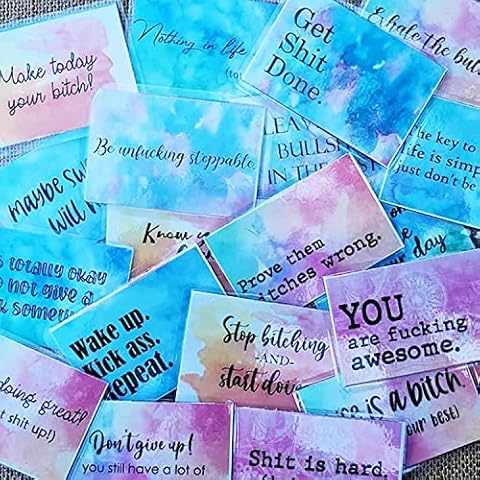 Make today
your bitch!
Nothing in life
(to
Get
Shit
Done.
Exhale the bul
Be unfucking stoppable.
LEAV
BULLSH
IN THE
The key to
life is simp
just don't be
maybe sw
will
Know
Prove them
bitches wrong.
our day
s totally okay
o not give a
ck
Wake up.
Kick ass.
Repeat.
Stop bitching
-AND-
start doin
YOU
are fucking
awesome.
is a bitch.
ur best)
doing great!
t shit up!)
Don't give up!
you still have a lot of
Shit is hard.